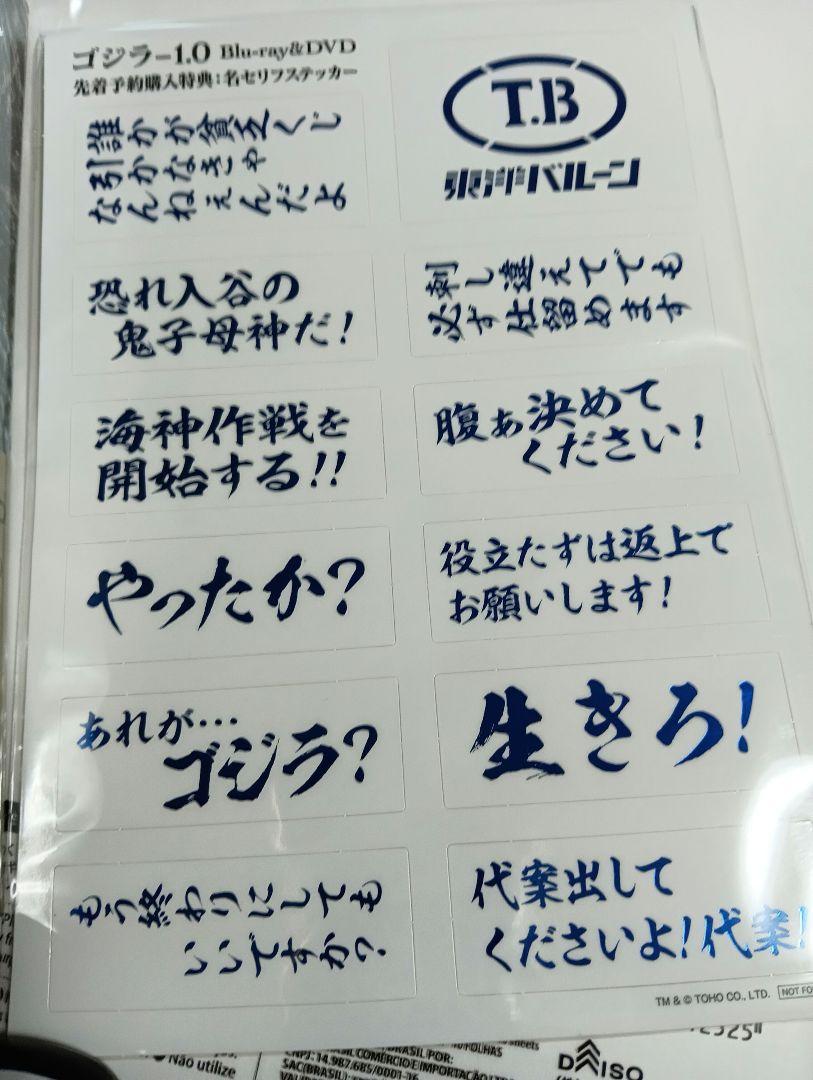 ゴジラ-1.0 Blu-ray&DVD
先着予約購入特典:名セリフステッカー
誰かが貧乏くじ
引かなきゃ
なんねぇんだよ
T.B
東洋バルーン
恐れ入谷の
鬼子母神だ!
刺し違えてでも
必ず仕留めます
海神作戦を
開始する!!
腹ぁ決めて
ください!
やったか?
役立たずは返上で
お願いします!
あれが…
ゴジラ?
生きろ!
もう終わりにしても
いいですか?
代案出して
くださいよ!代案!
TM & © TOHO CO., LTD.
NOT FO
"2325"
sheets
/FOLHAS
BRASIL POR:
BRASIL COMÉRCIO E IMPORTAÇÃO
CNPJ: 14.987.685/0001-16
SAC(BRASIL):
Não utilize
DAISO